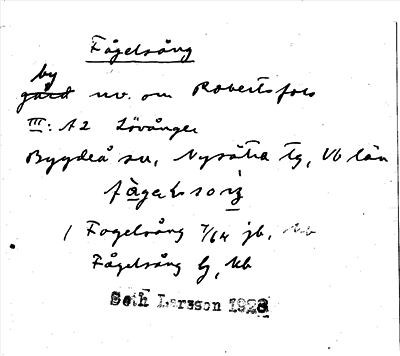 Fågelsång
by
gård nv. om Robertsfors
III: A2 Lövånger
Bygdeå sn, Nysätra tg, Vb län
1 Fogelsång 7/64 jb,
Fågelsång G, Kb
Seth Larsson 1928